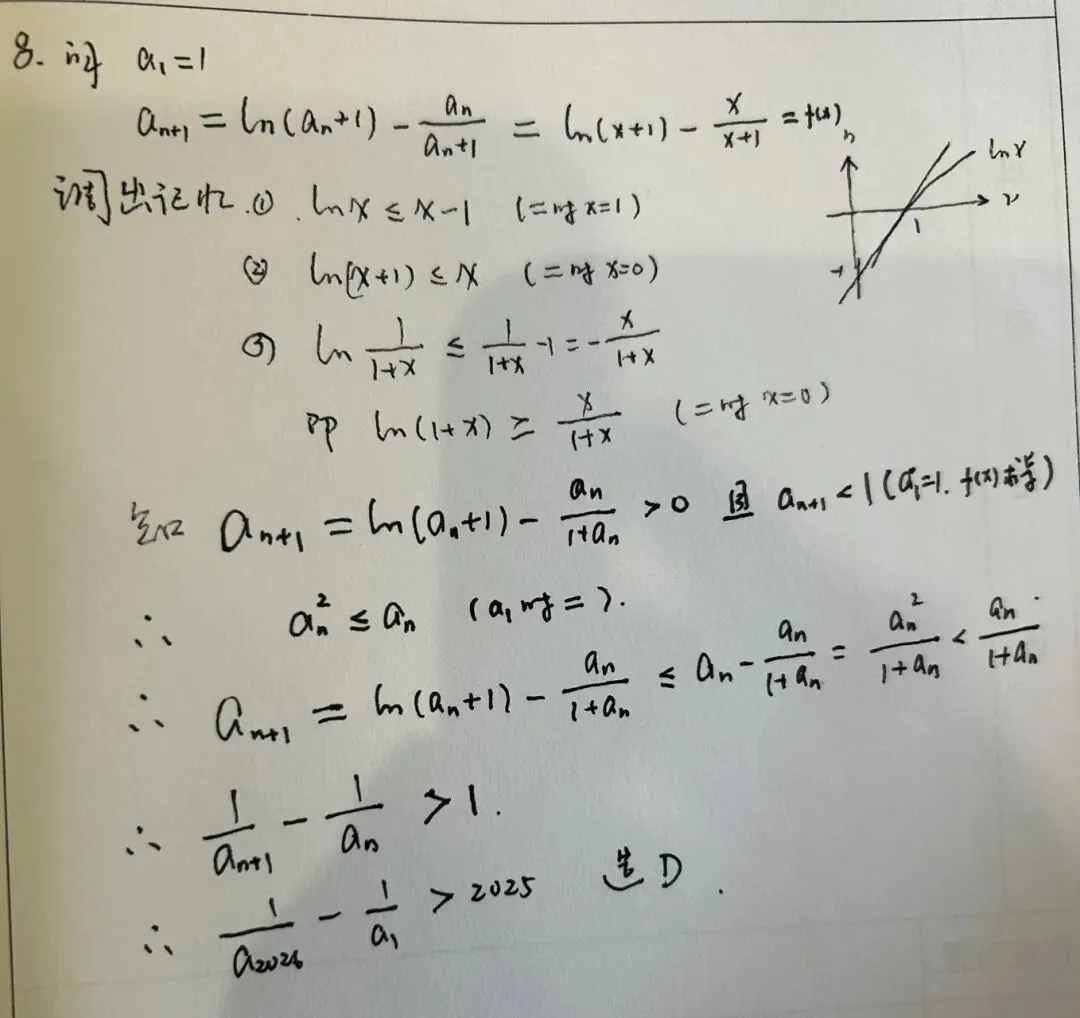 8. 证 a₁=1
aₙ₊₁ = ln(aₙ+1) - aₙ/(aₙ+1) = ln(x+1) - x/(x+1) = f(x)
lnx
1
-1
调出记忆 ① lnx ≤ x-1 (=时 x=1)
② ln(x+1) ≤ x (=时 x=0)
③ ln 1/(1+x) ≤ 1/(1+x) -1 = - x/(1+x)
即 ln(1+x) ≥ x/(1+x) (=时 x=0)
aₙ₊₁ = ln(aₙ+1) - aₙ/(1+aₙ) >0 且 aₙ₊₁ < 1 (a₁=1. f(x)求导)
∴ aₙ² ≤ aₙ (a₁时=).
∴ aₙ₊₁ = ln(aₙ+1) - aₙ/(1+aₙ) ≤ aₙ - aₙ/(1+aₙ) = aₙ²/(1+aₙ) < aₙ/(1+aₙ).
∴ 1/aₙ₊₁ - 1/aₙ > 1.
∴ 1/a₂₀₂₆ - 1/a₁ > 2025 选D.